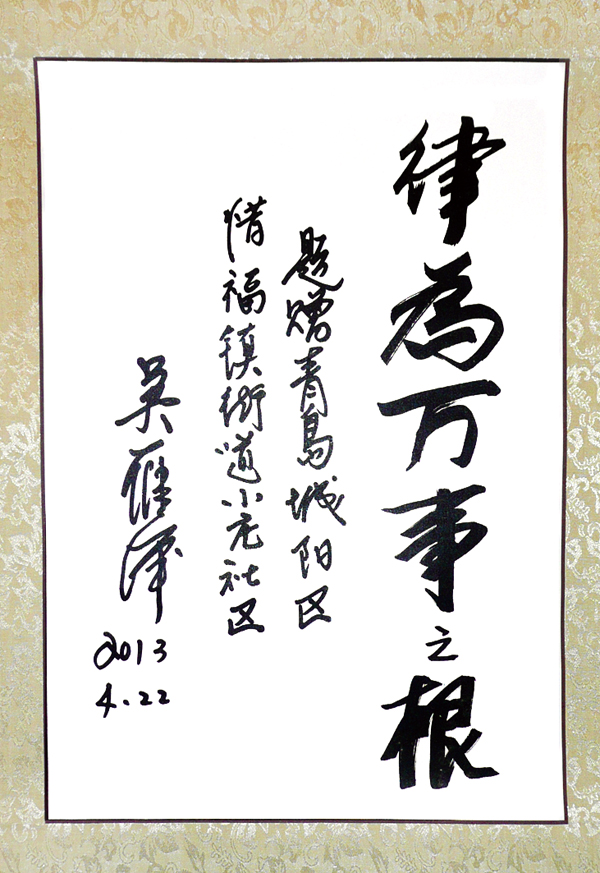 律為万事之根
题赠青島城阳区
惜福镇街道小庄社区
吴雁泽
2013
4.22